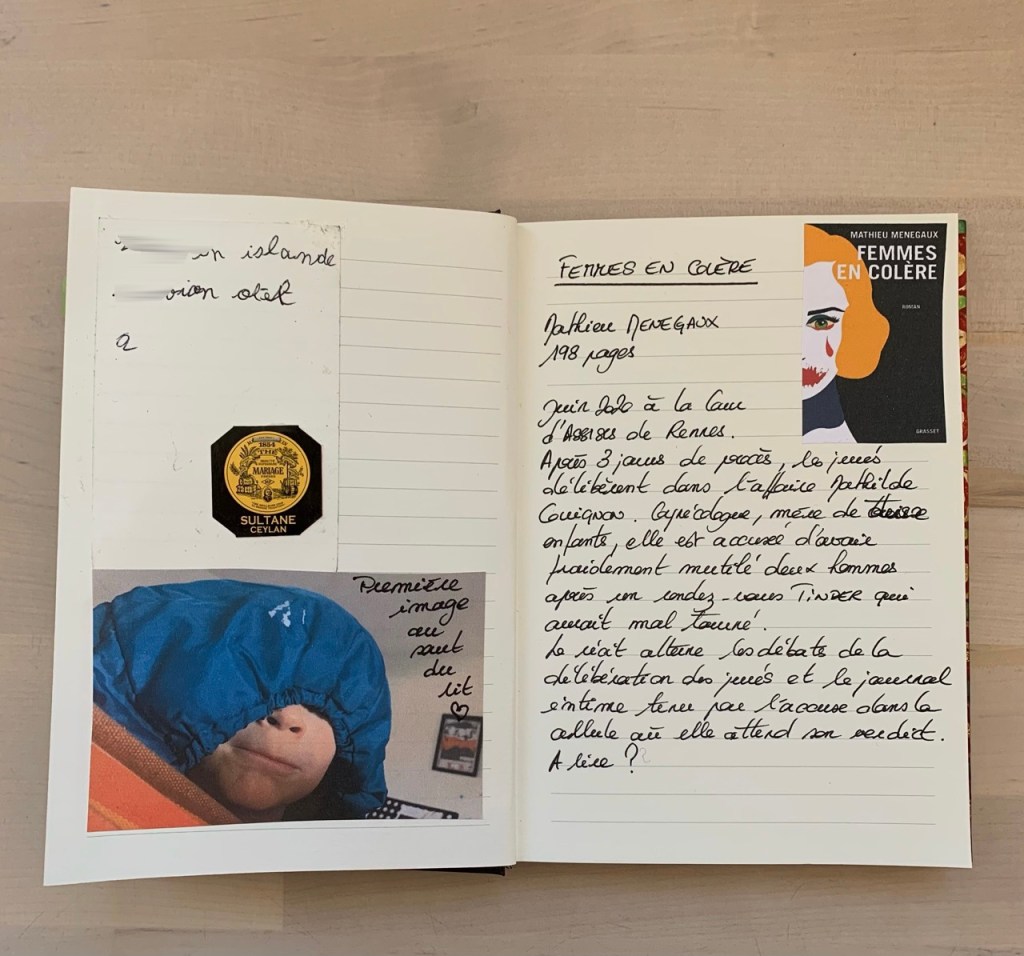 en islande
a
1854
THÉ
MARIAGE
SULTANE
CEYLAN
Première
image
au
saut
du
lit
FEMMES EN COLÈRE
Mathieu MENEGAUX
198 pages
Juin 2020 à la Cour
d'Assises de Rennes.
Après 3 jours de procès, les jurés
délibèrent dans l'affaire Mathilde
Collignon. Gynécologue, mère de
enfants, elle est accusée d'avoir
froidement mutilé deux hommes
après un rendez-vous TINDER qui
aurait mal tourné.
Le récit alterne les débats de la
délibération des jurés et le journal
intime tenu par l'accusée dans la
cellule où elle attend son verdict.
A lire ?
MATHIEU MENEGAUX
FEMMES
EN COLÈRE
ROMAN
GRASSET